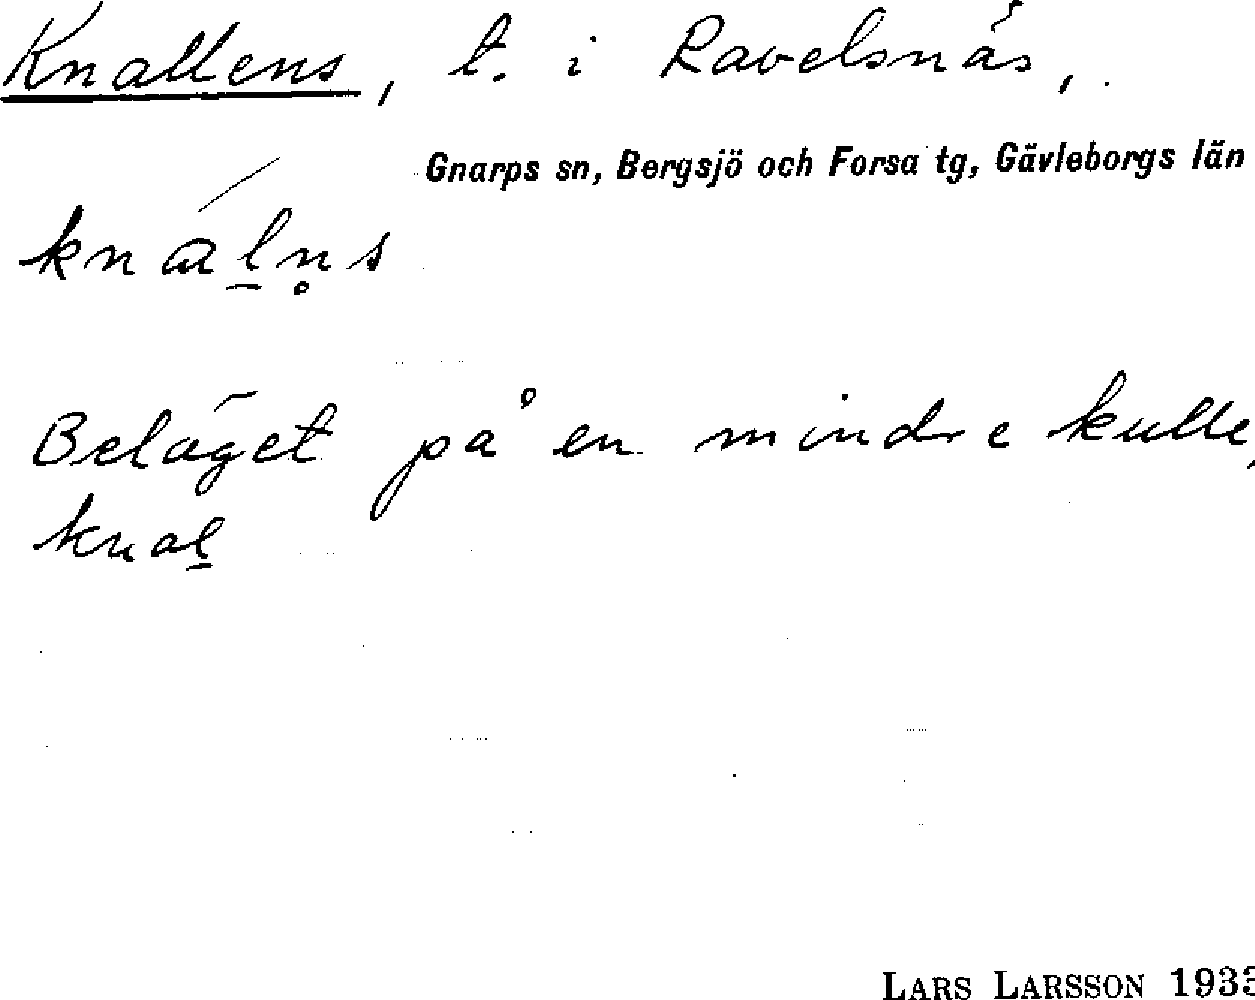 Knallens, t. i Ravelsnäs,
Gnarps sn, Bergsjö och Forsa tg, Gävleborgs län
knál̲n̥s
Beläget på en mindre kulle,
knal̲
LARS LARSSON 1933